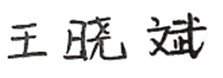 王晓斌